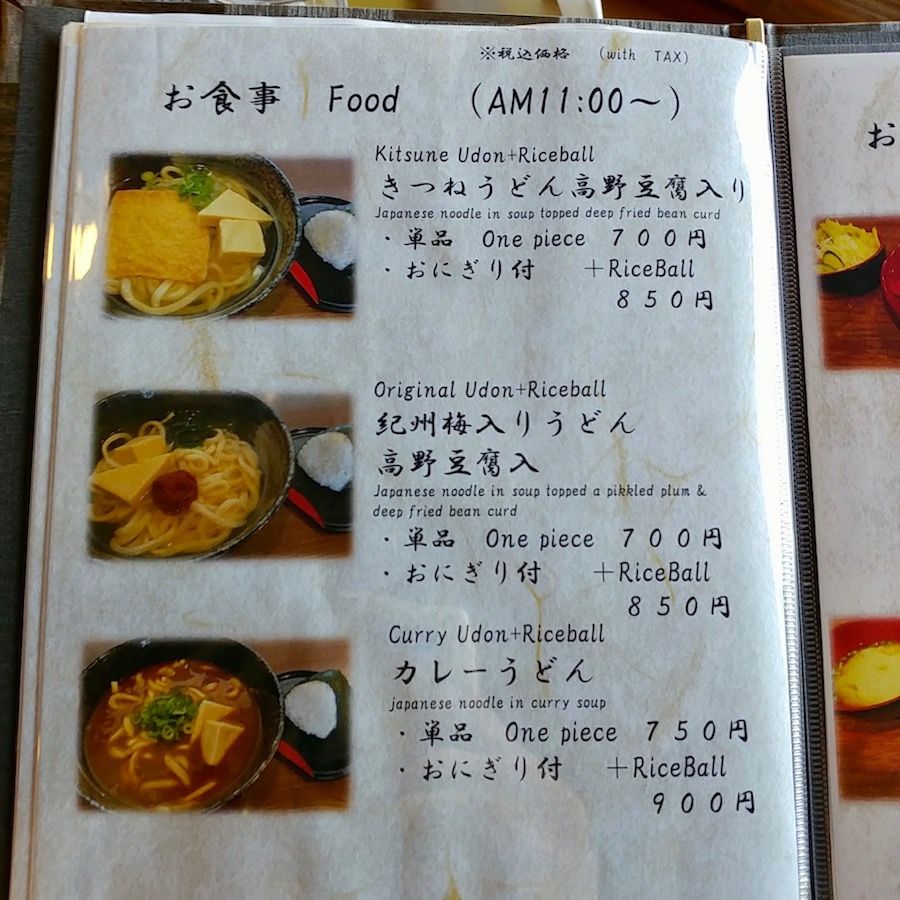 ※税込価格 (with TAX)
お食事 Food (AM11:00～)
Kitsune Udon+Riceball
きつねうどん高野豆腐入り
Japanese noodle in soup topped deep fried bean curd
・単品 One piece ７００円
・おにぎり付 ＋RiceBall
８５０円
Original Udon+Riceball
紀州梅入りうどん
高野豆腐入
Japanese noodle in soup topped a pikkled plum &
deep fried bean curd
・単品 One piece ７００円
・おにぎり付 ＋RiceBall
８５０円
Curry Udon+Riceball
カレーうどん
japanese noodle in curry soup
・単品 One piece ７５０円
・おにぎり付 ＋RiceBall
９００円
お